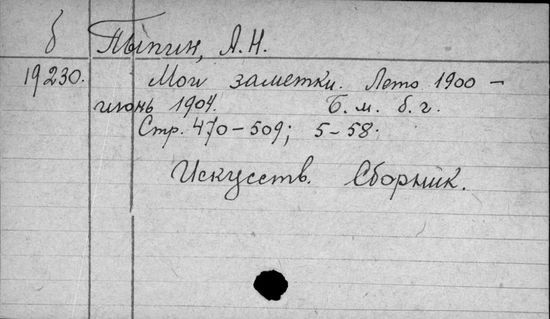 б Пыпин, А.Н.
19230. Мои заметки. Лето 1900 –
июнь 1904. Б. м. б. г.
Стр. 470–509; 5–58.
Искусств. Сборник.